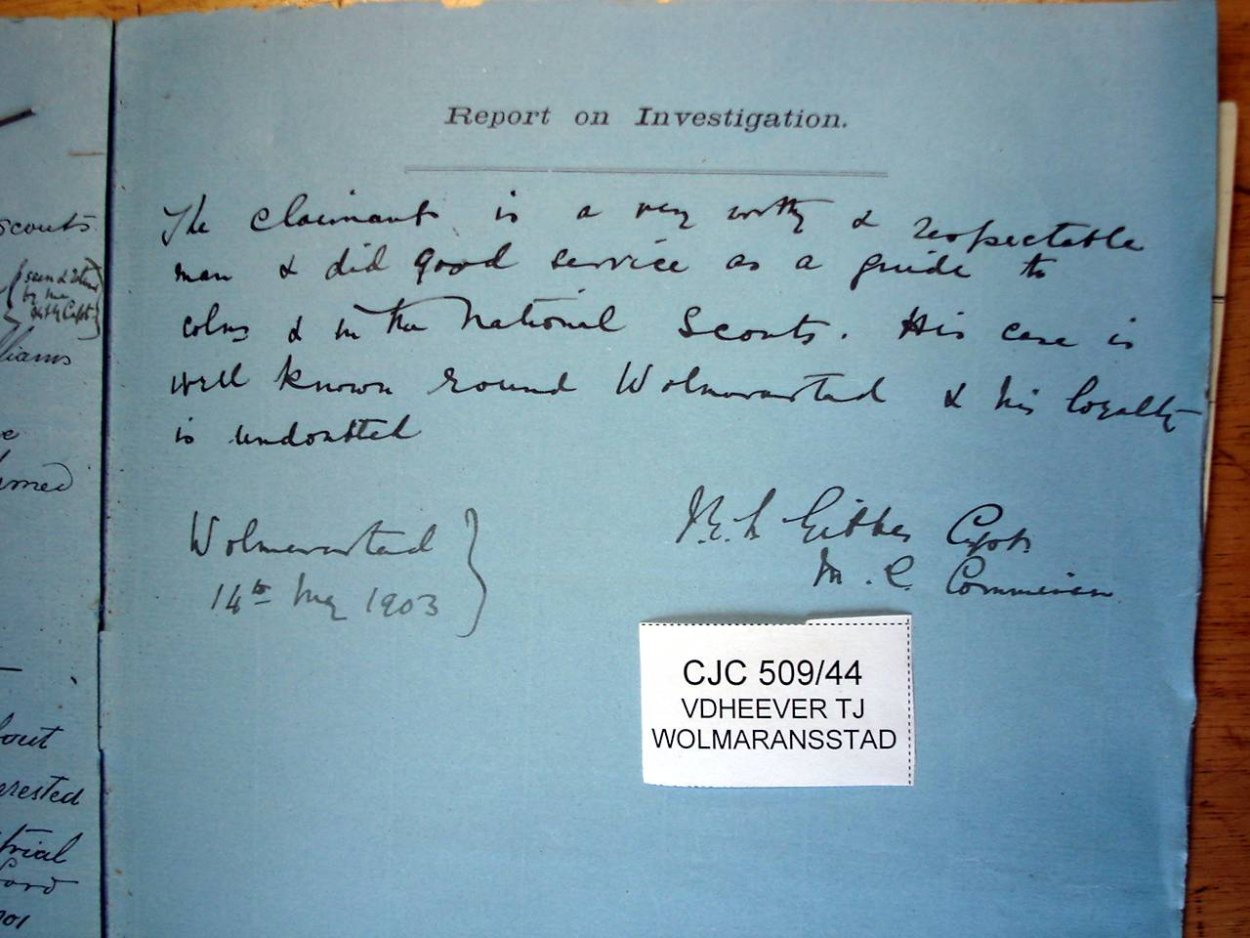 Report on Investigation.
The claimant is a very worthy & respectable
man & did good service as a guide to
colns & in the National Scouts. His case is
well known round Wolmaranstad & his loyalty
is undoubted
Wolmaranstad
14th May 1903
Gibbes Capt
M. C. Commission
CJC 509/44
VDHEEVER TJ
WOLMARANSSTAD
scouts
by me
lliams
med
out
rested
trial
901